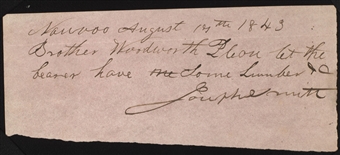 Nauvoo August 14th 1843
Brother Woodworth Please let the
bearer have me Some Lumber &C
Joseph Smith